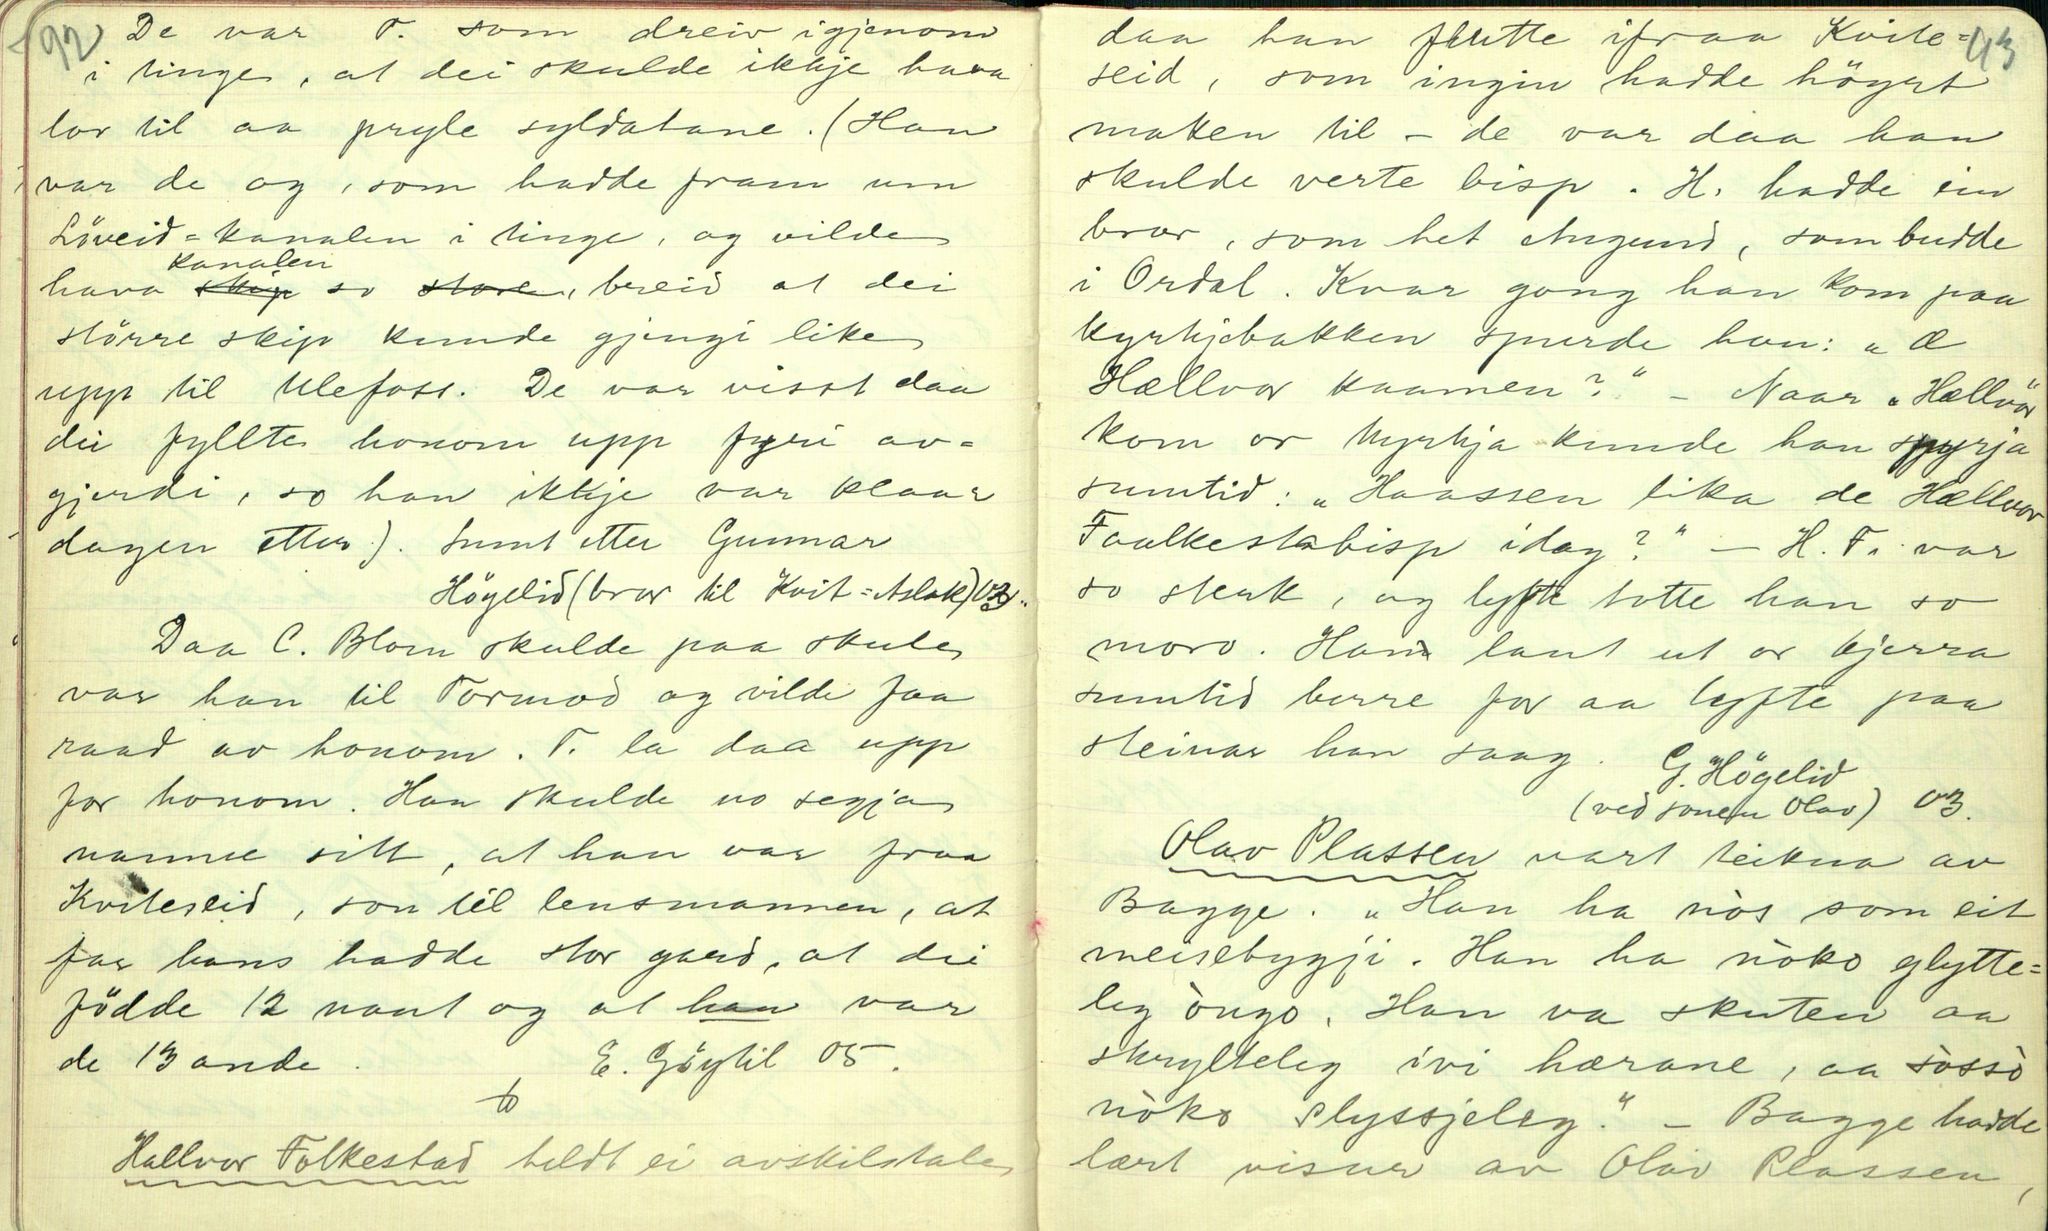 92
De var T. som dreiv igjenom
i tinge, at dei skulde ikkje hava
lov til aa pryle syldatane. (Han
var de og, som hadde fram um
Löveid=kanalen i tinge, og vilde
kanalen
hava skip so store, breid at dei
större skip kunde gjengi like
upp til Ulefoss. De var visst daa
dei fyllte honom upp fyri av=
gjerdi, so han ikkje var klaar
dagen etter). Sumt etter Gunnar
Högelid (bror til Kvit=Aslak) 03.
Daa C. Blom skulde paa skule
var han til Tormod og vilde faa
raad av honom. T. la daa upp
for honom. Han skulde no segja
namne sitt, at han var fraa
Kviteseid, son til lensmannen, at
far hans hadde stor gard, at dei
födde 12 naut og at han var
de 13 ande. E. Göytil 05.
Hallvor Folkestad heldt ei avskilstale
93
daa han flutte ifraa Kvite=
seid, som ingin hadde högrt
maken til – de var daa han
skulde verte bisp. H. hadde ein
bror, som het Augund, som budde
i Ordal. Kvar gong han kom paa
kyrkjebakken spurde han: „Æ
Hællvor kaamen?" – Naar „Hællvor
kom or kyrkja kunde han spyrja
sumtid: „Haassen lika de Hællvor
Faalkestabisp idag?" – H. F. var
so sterk, og lyfte totte han so
moro. Han laut ut or kjerra
sumtid berre for aa lyfte paa
steinar han saag. G. Högelid
(ved sonen Olav) 03.
Olav Plassen vart teikna av
Bagge. „Han ha nòs som eit
meisebygji. Han ha nòko glytte=
leg òugo. Han va skuten aa
skrylteleg ivi hærane, aa sòssò
nòko slyssjeleg." – Bagge hadde
lært visur av Olav Plassen,